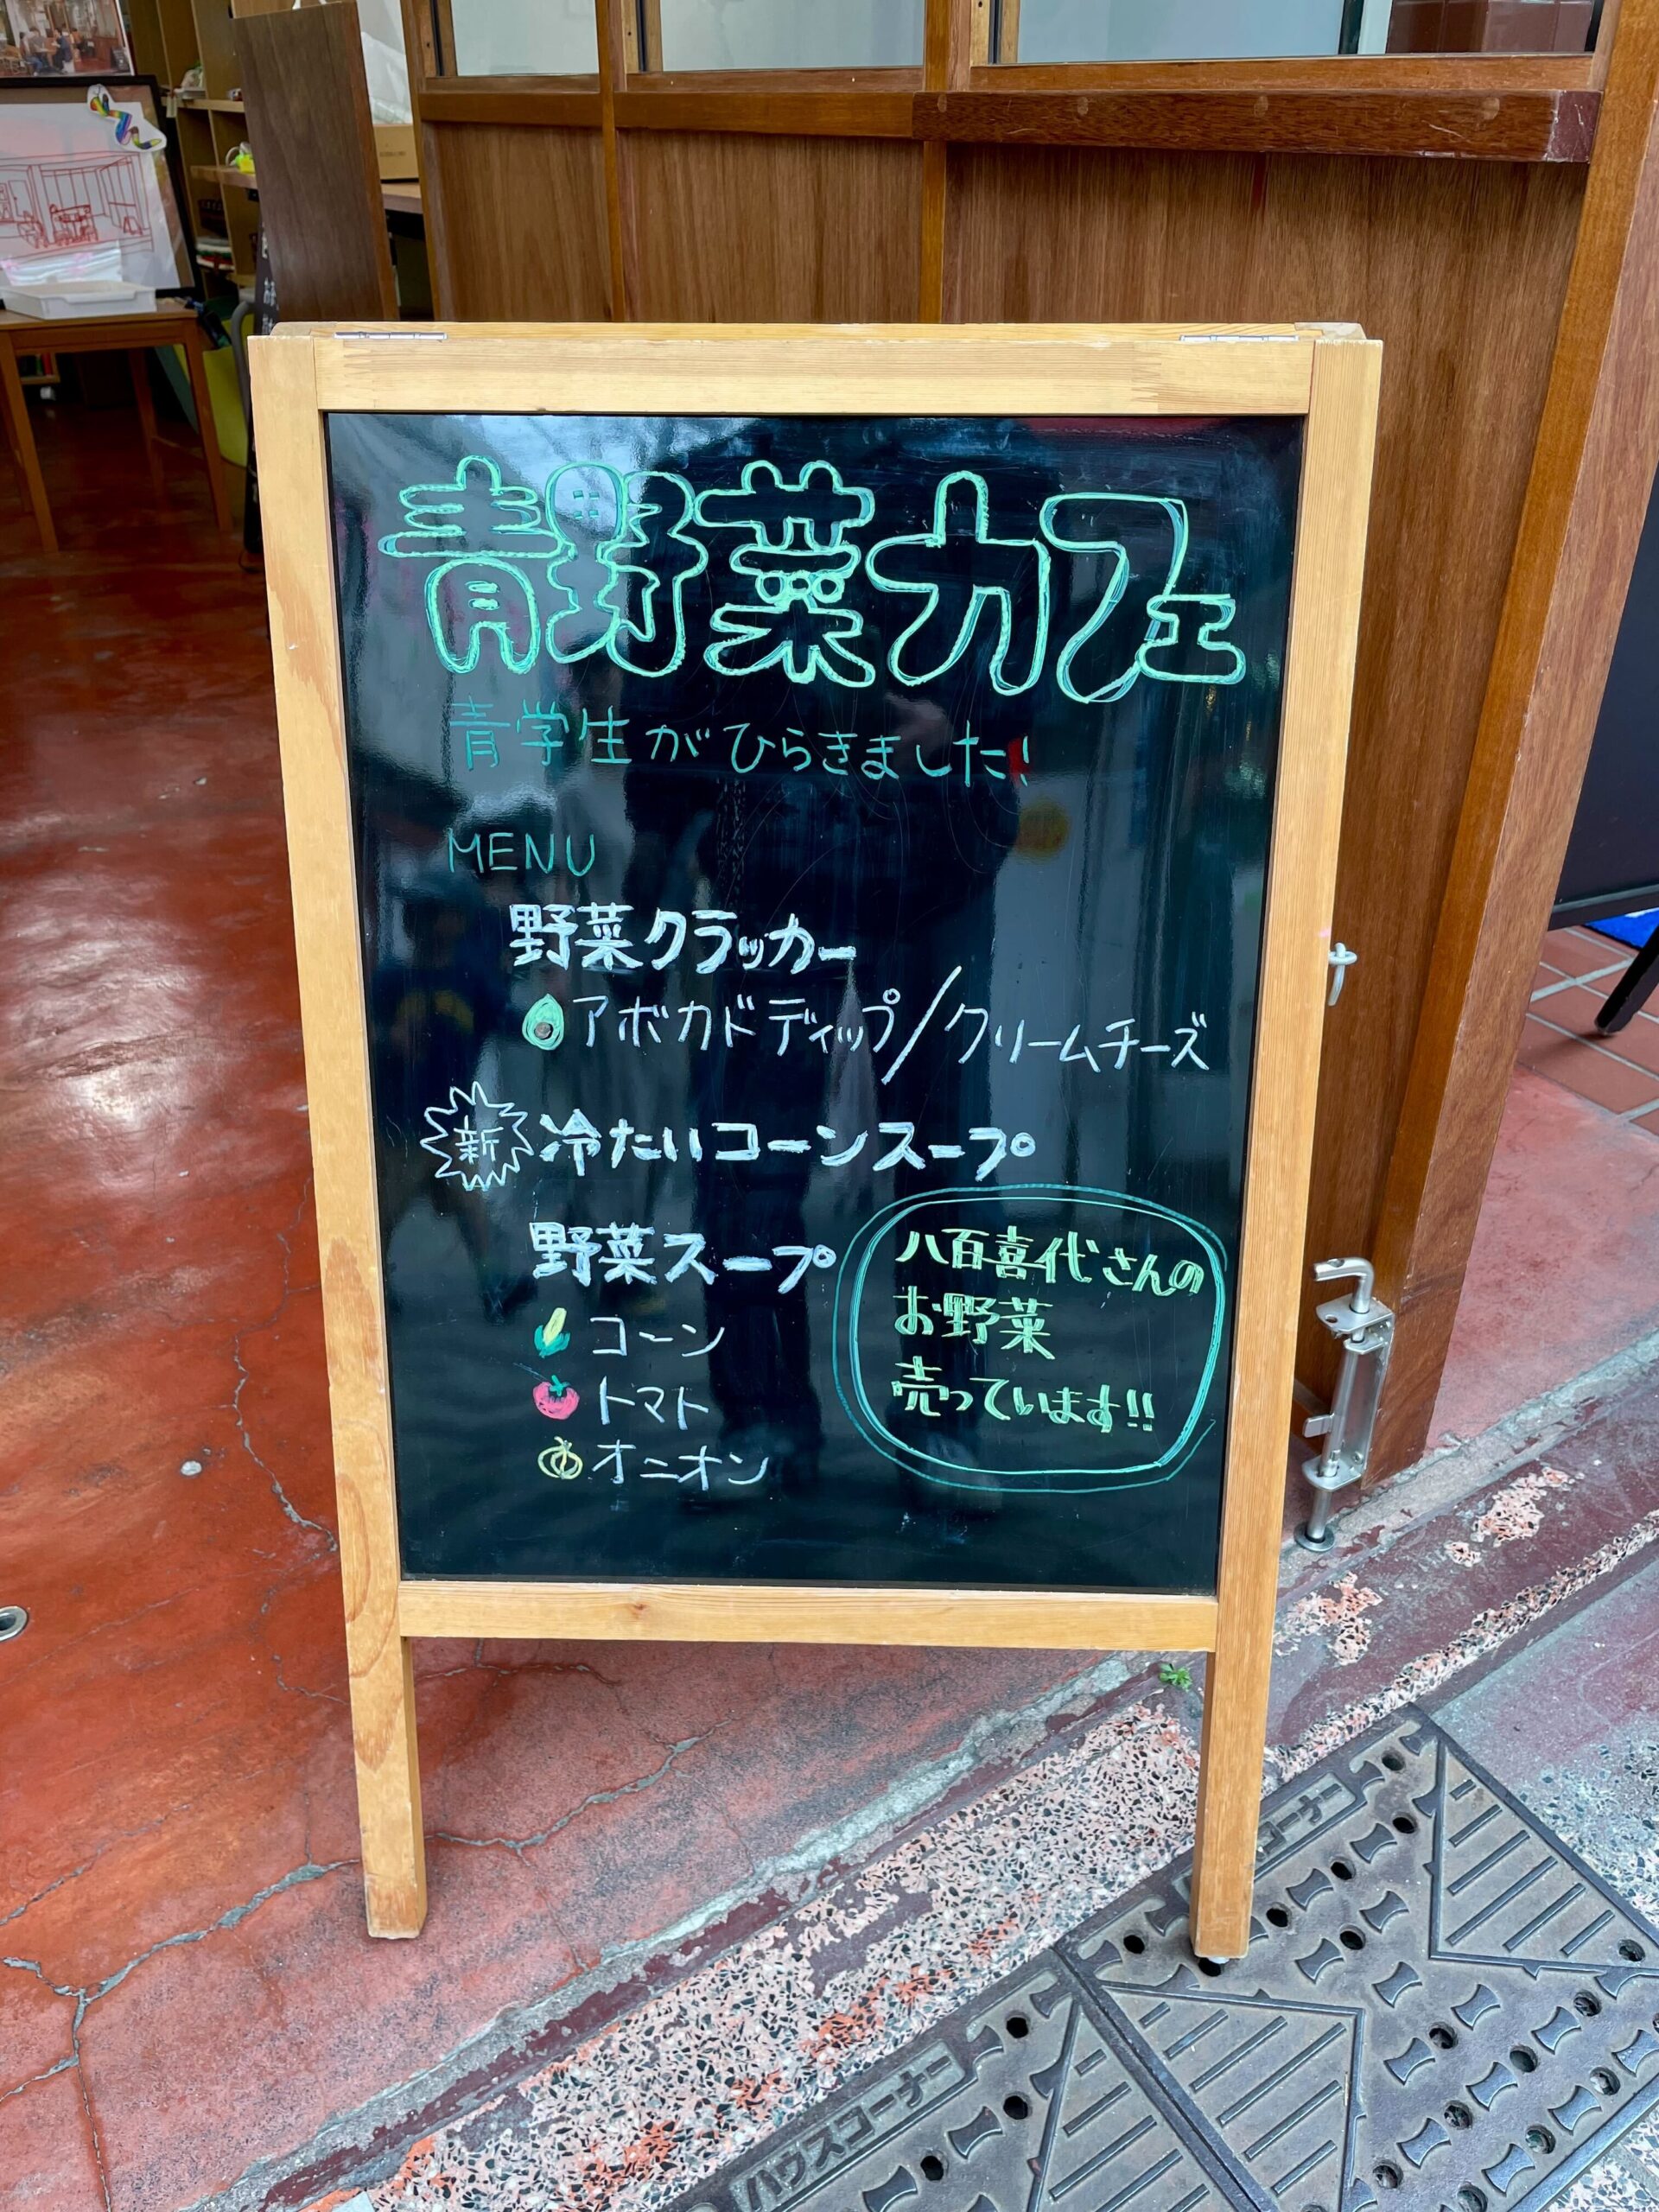 青野菜カフェ
青学生がひらきました!
MENU
野菜クラッカー
アボカドディップ/クリームチーズ
新 冷たいコーンスープ
野菜スープ
コーン
トマト
オニオン
八百喜代さんの
お野菜
売っています!!
ハウスコーナー